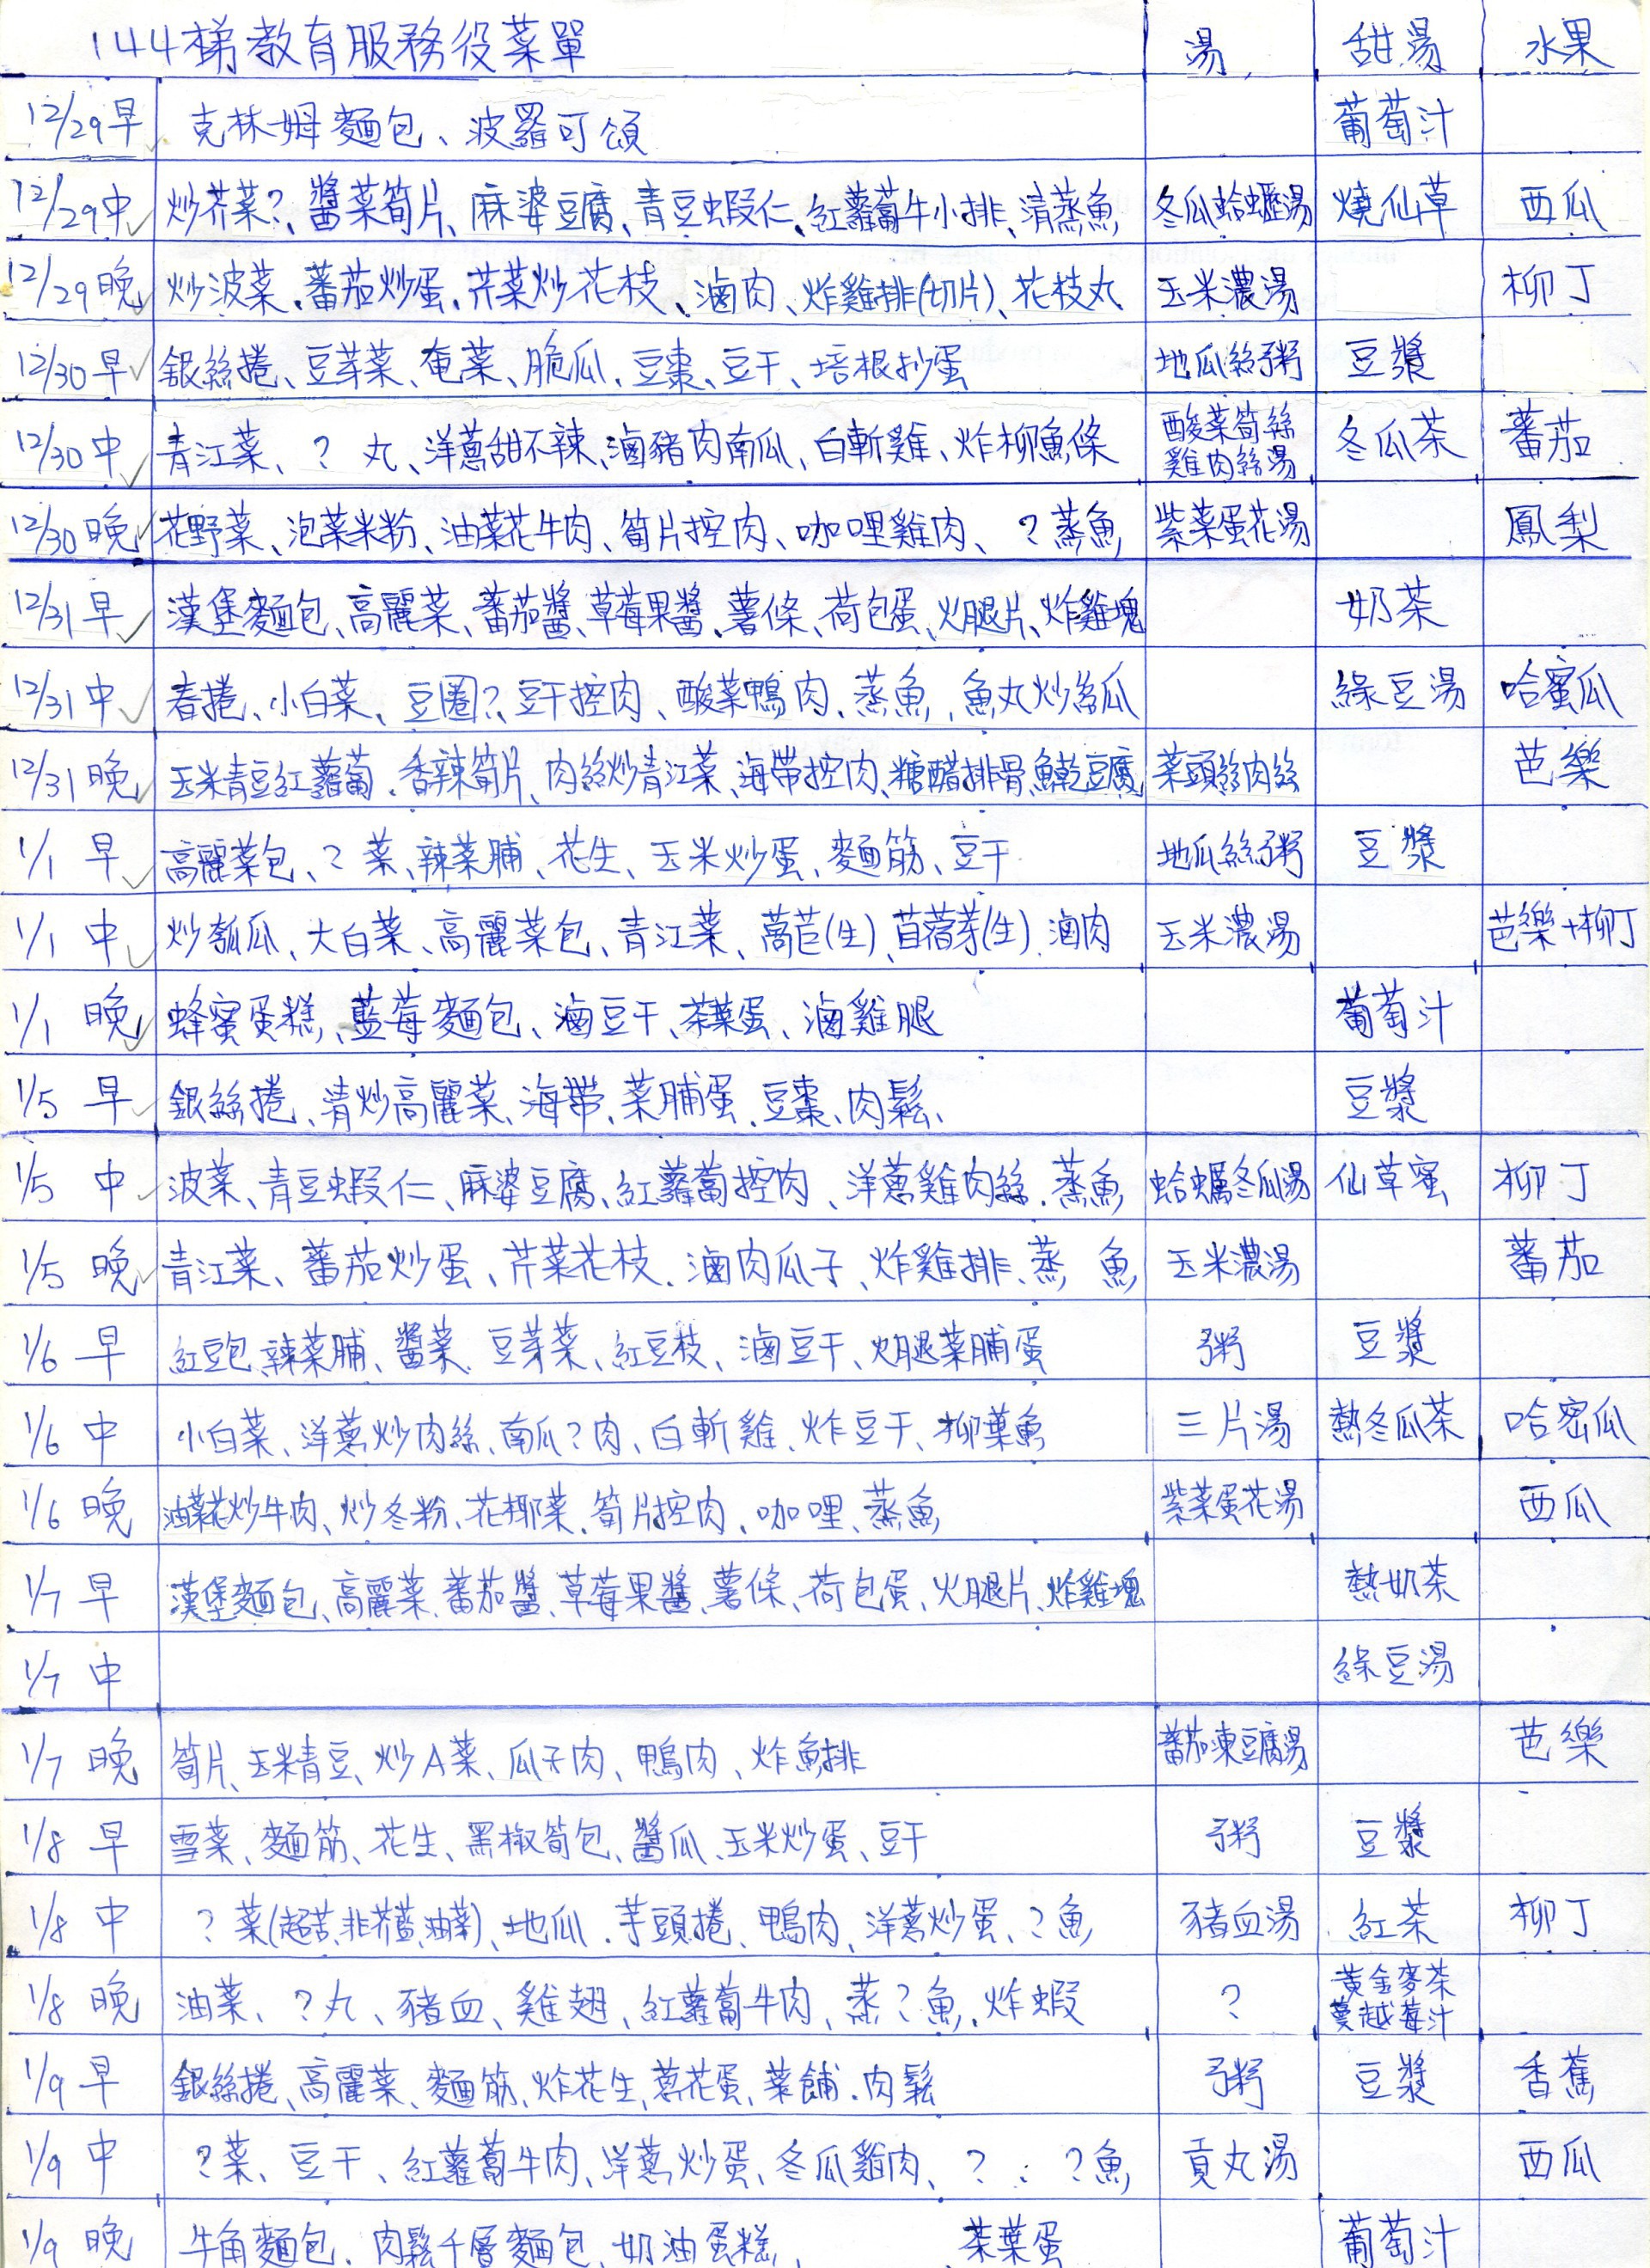 144梯教育服務役菜單 湯 甜湯 水果
12/29早 克林姆麵包、波羅可頌 葡萄汁
12/29中 炒芥菜?、醬菜筍片、麻婆豆腐、青豆蝦仁、紅蘿蔔牛小排、清蒸魚 冬瓜蛤蠣湯 燒仙草 西瓜
12/29晚 炒波菜、蕃茄炒蛋、芹菜炒花枝、滷肉、炸雞排(切片)、花枝丸 玉米濃湯 柳丁
12/30早 銀絲捲、豆芽菜、奄菜、脆瓜、豆棗、豆干、培根炒蛋 地瓜絲粥 豆漿
12/30中 青江菜、?丸、洋蔥甜不辣、滷豬肉南瓜、白斬雞、炸柳魚條 酸菜筍絲雞肉絲湯 冬瓜茶 蕃茄
12/30晚 花野菜、泡菜米粉、油菜花牛肉、筍片控肉、咖哩雞肉、?蒸魚 紫菜蛋花湯 鳳梨
12/31早 漢堡麵包、高麗菜、蕃茄醬、草莓果醬、薯條、荷包蛋、火腿片、炸雞塊 奶茶
12/31中 春捲、小白菜、豆圈?、豆干控肉、酸菜鴨肉、蒸魚、魚丸炒絲瓜 綠豆湯 哈蜜瓜
12/31晚 玉米青豆紅蘿蔔、香辣筍片、肉絲炒青江菜、海帶控肉、糖醋排骨、魚乾豆腐 菜頭絲肉絲 芭樂
1/1 早 高麗菜包、?菜、辣菜脯、花生、玉米炒蛋、麵筋、豆干 地瓜絲粥 豆漿
1/1 中 炒瓠瓜、大白菜、高麗菜包、青江菜、萵苣(生)、苜蓿芽(生)、滷肉 玉米濃湯 芭樂+柳丁
1/1 晚 蜂蜜蛋糕、藍莓麵包、滷豆干、茶葉蛋、滷雞腿 葡萄汁
1/5 早 銀絲捲、清炒高麗菜、海帶、菜脯蛋、豆棗、肉鬆、 豆漿
1/5 中 波菜、青豆蝦仁、麻婆豆腐、紅蘿蔔控肉、洋蔥雞肉絲、蒸魚 蛤蠣冬瓜湯 仙草蜜 柳丁
1/5 晚 青江菜、蕃茄炒蛋、芹菜花枝、滷肉瓜子、炸雞排、蒸魚 玉米濃湯 蕃茄
1/6 早 紅豆包、辣菜脯、醬菜、豆芽菜、紅豆枝、滷豆干、火腿菜脯蛋 粥 豆漿
1/6 中 小白菜、洋蔥炒肉絲、南瓜?肉、白斬雞、炸豆干、柳葉魚 三片湯 熱冬瓜茶 哈密瓜
1/6 晚 油菜花炒牛肉、炒冬粉、花椰菜、筍片控肉、咖哩、蒸魚 紫菜蛋花湯 西瓜
1/7 早 漢堡麵包、高麗菜、蕃茄醬、草莓果醬、薯條、荷包蛋、火腿片、炸雞塊 熱奶茶
1/7 中 綠豆湯
1/7 晚 筍片、玉米青豆、炒A菜、瓜子肉、鴨肉、炸魚排 蕃茄凍豆腐湯 芭樂
1/8 早 雪菜、麵筋、花生、黑椒筍包、醬瓜、玉米炒蛋、豆干 粥 豆漿
1/8 中 ?菜(超苦,非芥藍,油菜)、地瓜、芋頭捲、鴨肉、洋蔥炒蛋、?魚 豬血湯 紅茶 柳丁
1/8 晚 油菜、?丸、豬血、雞翅、紅蘿蔔牛肉、蒸?魚、炸蝦 ? 黃金麥茶 蔓越莓汁
1/9 早 銀絲捲、高麗菜、麵筋、炸花生、蔥花蛋、菜餔、肉鬆 粥 豆漿 香蕉
1/9 中 ?菜、豆干、紅蘿蔔牛肉、洋蔥炒蛋、冬瓜雞肉、?、?魚 貢丸湯 西瓜
1/9 晚 牛角麵包、肉鬆千層麵包、奶油蛋糕、 茶葉蛋 葡萄汁